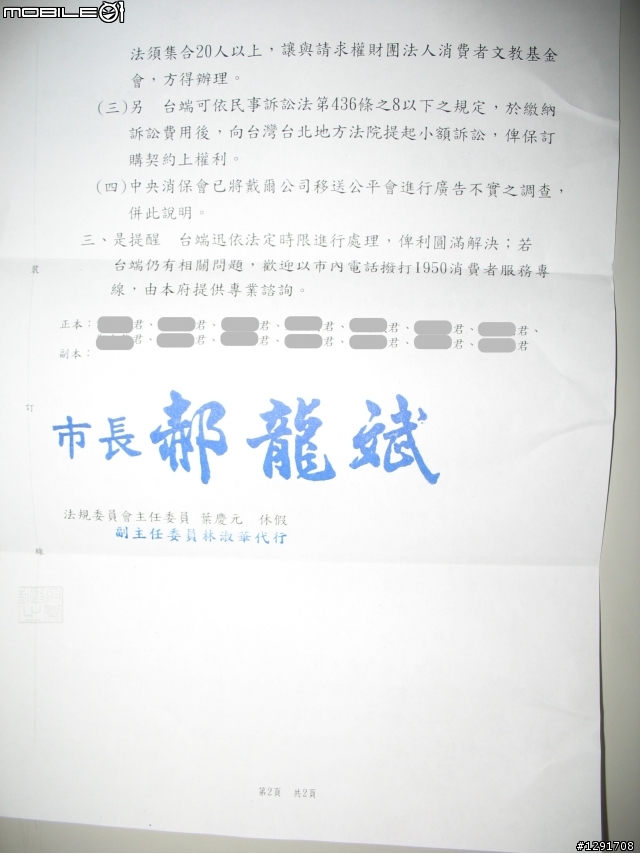 MOBILE01
法須集合20人以上，讓與請求權財團法人消費者文教基金
會，方得辦理。
(三)另　台端可依民事訴訟法第436條之8以下之規定，於繳納
訴訟費用後，向台灣台北地方法院提起小額訴訟，俾保訂
購契約上權利。
(四)中央消保會已將戴爾公司移送公平會進行廣告不實之調查，
併此說明。
三、是提醒　台端迅依法定時限進行處理，俾利圓滿解決；若
台端仍有相關問題，歡迎以市內電話撥打1950消費者服務專
線，由本府提供專業諮詢。
裝
正本：君、君、君、君、君、君、君、
君、君、君、君、君、君、君
副本：
訂
市長 郝龍斌
法規委員會主任委員 葉慶元　休假
副主任委員林淑華代行
線
第2頁　共2頁
#1291708